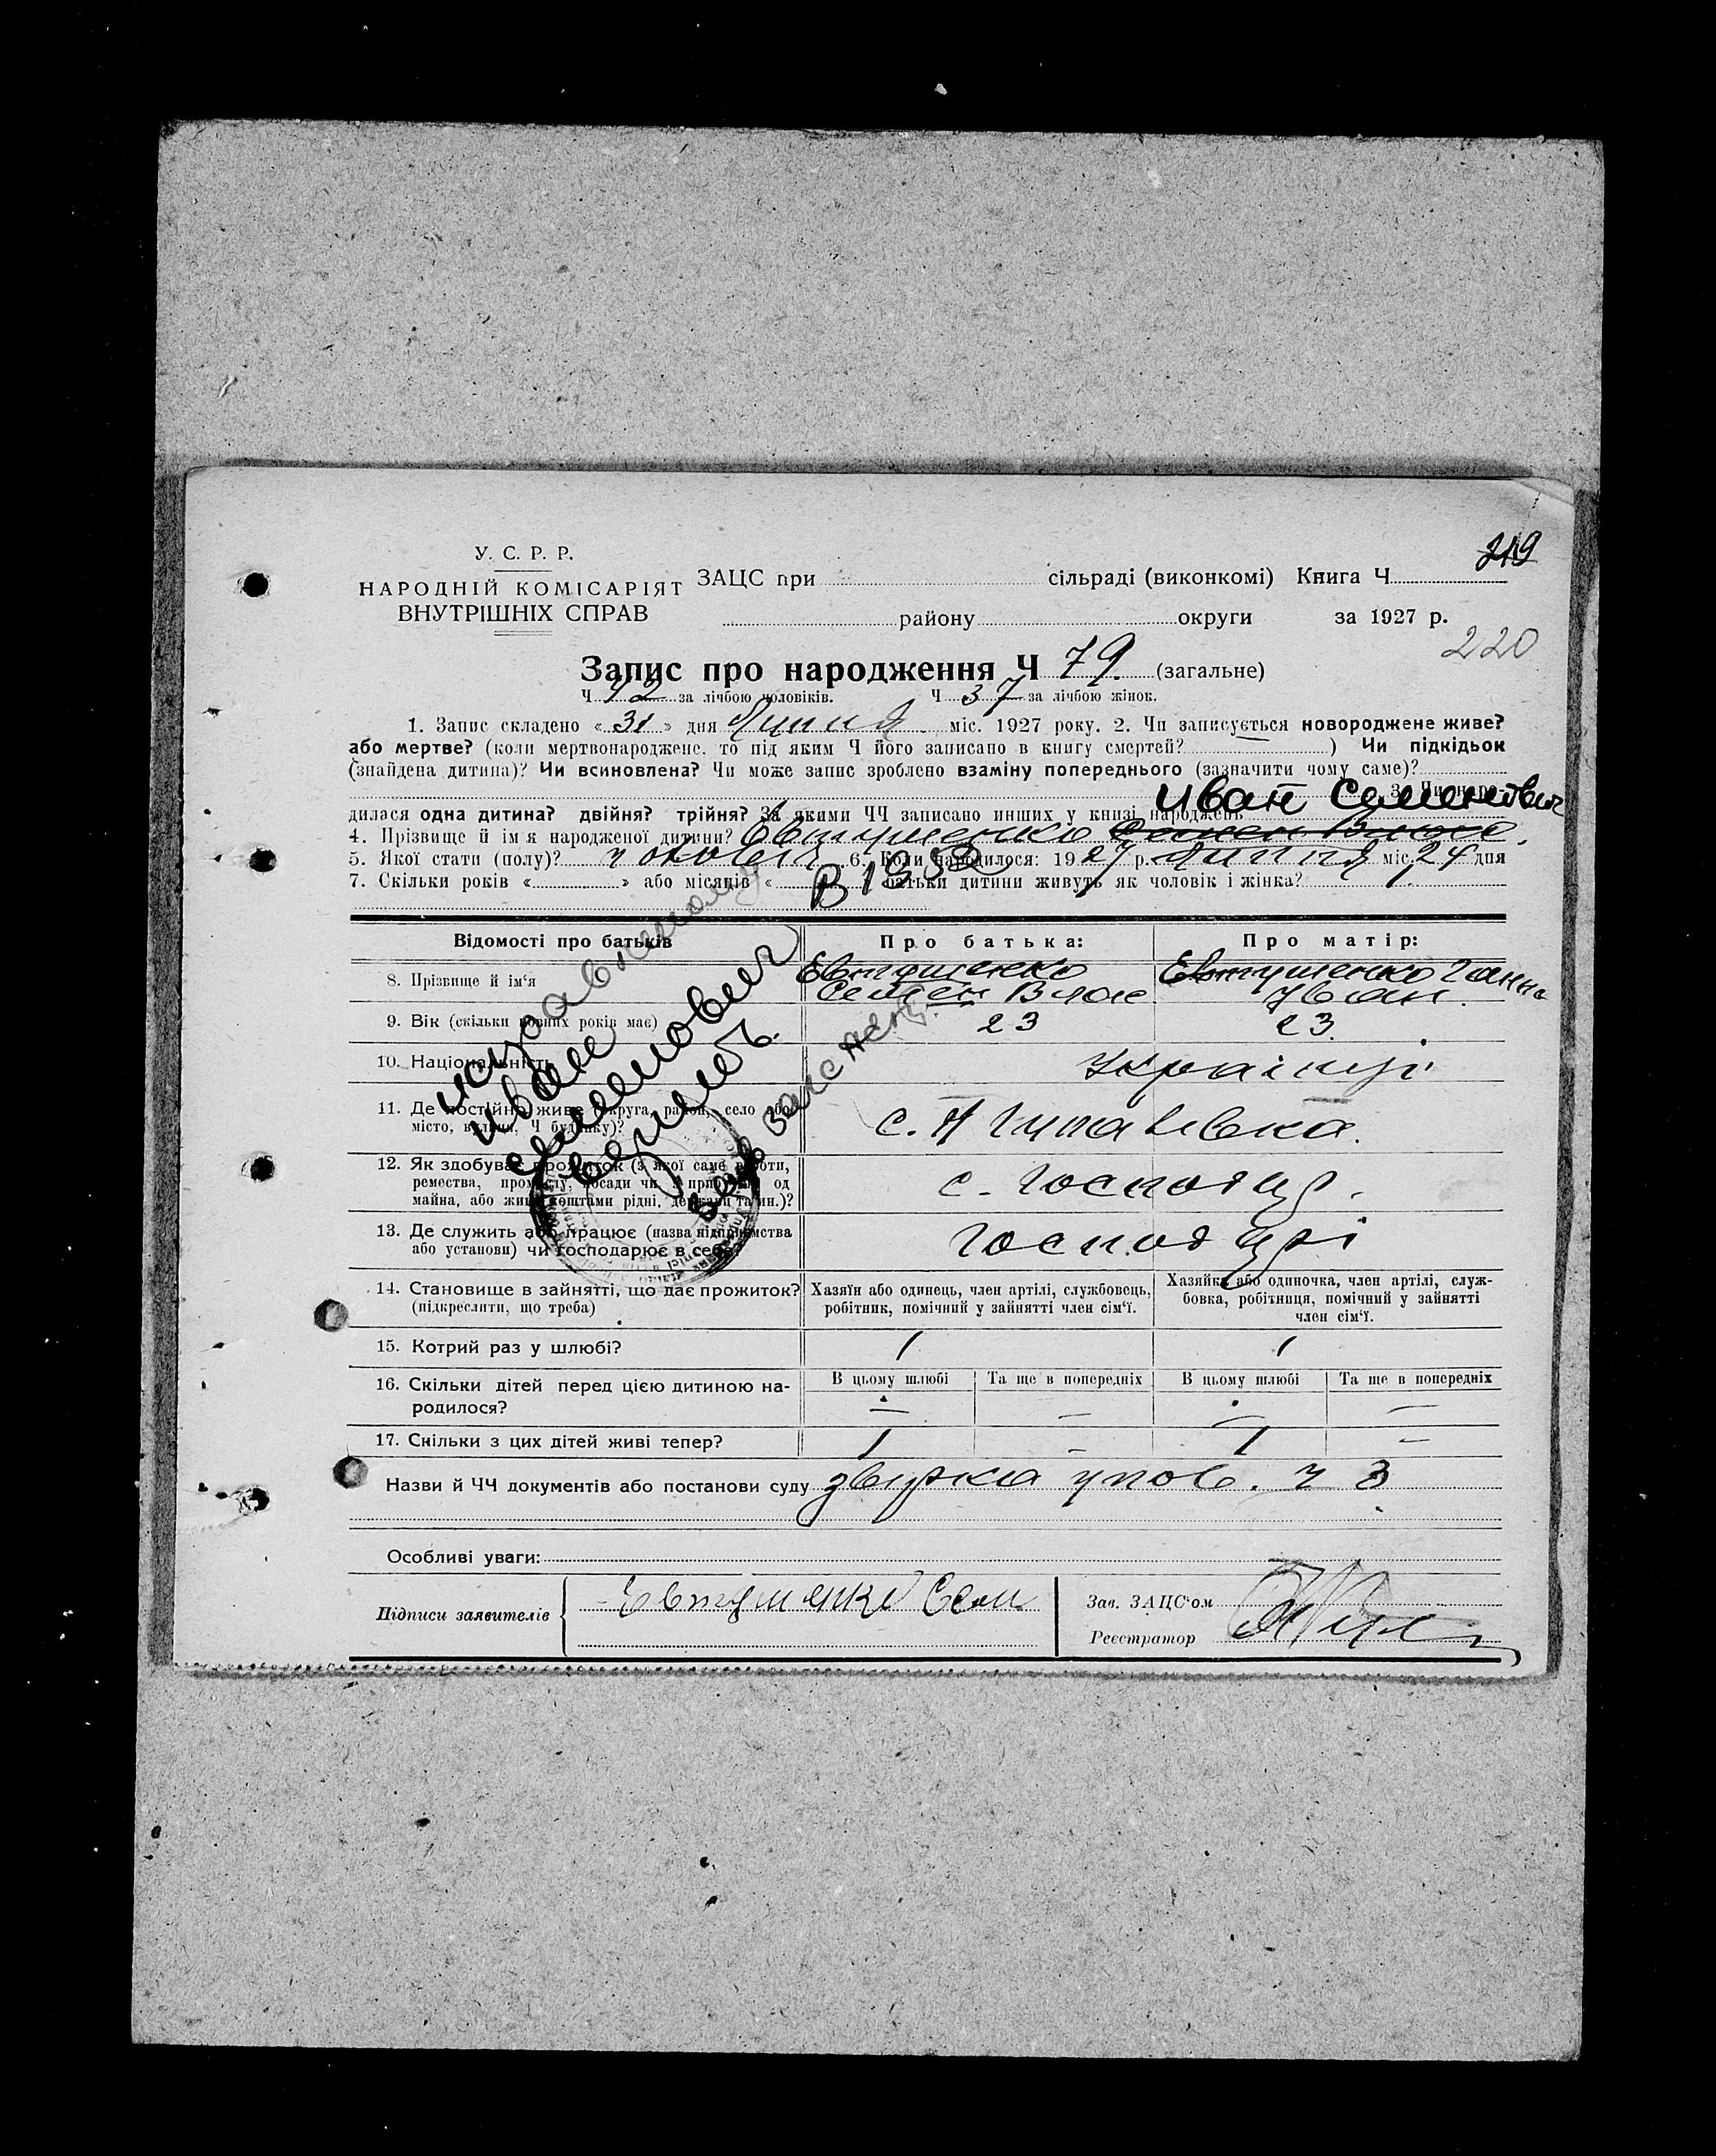 У. С. Р. Р.
НАРОДНІЙ КОМІСАРІЯТ
ВНУТРІШНІХ СПРАВ
ЗАЦС при сільраді (виконкомі) Книга Ч 219
району округи за 1927 р.
220
Запис про народження Ч 79. (загальне)
Ч 42 за лічбою чоловіків. Ч 37 за лічбою жінок.
1. Запис складено « 31 » дня Липня міс. 1927 року. 2. Чи записується новороджене живе?
або мертве? (коли мертвонароджене, то під яким Ч його записано в книгу смертей? ) Чи підкідьок
(знайдена дитина)? Чи всиновлена? Чи може запис зроблено взаміну попереднього (зазначити чому саме)?
3. Чи наро-
Иван Семенович
дилася одна дитина? двійня? трійня? За якими ЧЧ записано инших у книзі народжень
4. Прізвище й ім'я народженої дитини? Евтушенко Семен Влас.
5. Якої стати (полу)? чоловіч 6. Коли народилося: 1927 р. липня міс. 24 дня
7. Скільки років « » або місяців « батьки дитини живуть як чоловік і жінка? 1.
исправленому
Иван
Семенович
верить.
зав загс
Відомості про батьків Про батька: Про матір:
8. Прізвище й ім'я Евтушенко Семен Влас Евтушенко Ганна Іван.
9. Вік (скільки повних років має) 23 23.
10. Національність Українці
11. Де постійно живе (округа, район, село або
місто, вулиця, Ч будинку)? с.
12. Як здобуває прожиток (з якої саме роботи,
ремества, промислу, посади чи з прибутків од
майна, або живе коштами рідні, держави та ин.)?
13. Де служить або працює (назва підприємства
або установи) чи господарює в себе? Господарі
14. Становище в зайнятті, що дає прожиток?
(підкреслити, що треба)
Хазяїн або одинець, член артілі, службовець,
робітник, помічний у зайнятті член сім'ї.
Хазяйка або одиночка, член артілі, служ-
бовка, робітниця, помічний у зайнятті
член сім'ї.
15. Котрий раз у шлюбі? 1 1
16. Скільки дітей перед цією дитиною на-
родилося?
В цьому шлюбі Та ще в попередніх В цьому шлюбі Та ще в попередніх
— — — —
17. Скільки з цих дітей живі тепер? 1 — 1 —
Назви й ЧЧ документів або постанови суду ч 3
Особливі уваги:
Підписи заявителів Евтушенко Сем
Зав. ЗАЦС'ом
Реєстратор